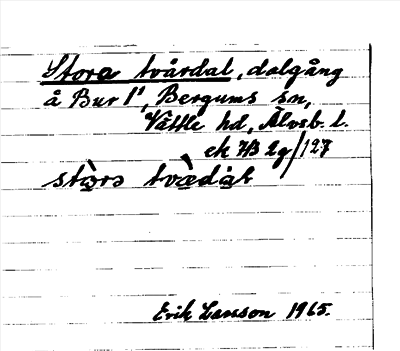 Stora tvärdal, dalgång
å Bur 1¹, Bergums sn,
Vättle hd, Älvsb. l.
ek 7B 2g/127
Erik Larsson 1965.